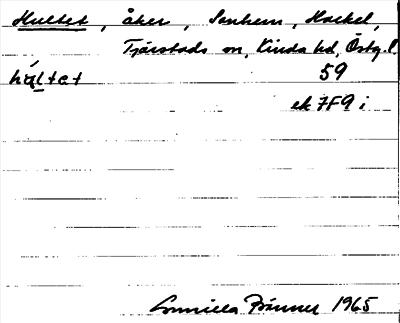 Hultet, åker, Sonhem, Hackel,
Tjärstads sn, Kinda hd, Östg.l.
hál̲tət 59
ek 7F9 i
Gunilla Bänner 1965